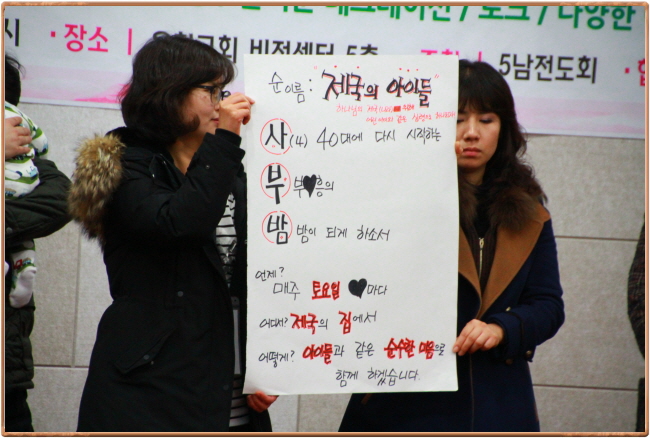 데크레이션 / 토크 / 다양한
시 · 장소 | 교회 비전센터 5층 5남전도회
순이름 : "제국의 아이들"
사(4) 40대에 다시 시작하는
부 부♥흥의
밤 밤이 되게 하소서
언제?
매주 토요일 ♥마다
어디서? 제국의 집에서
어떻게? 아이들과 같은 순수한 마음으로
함께 하겠습니다.